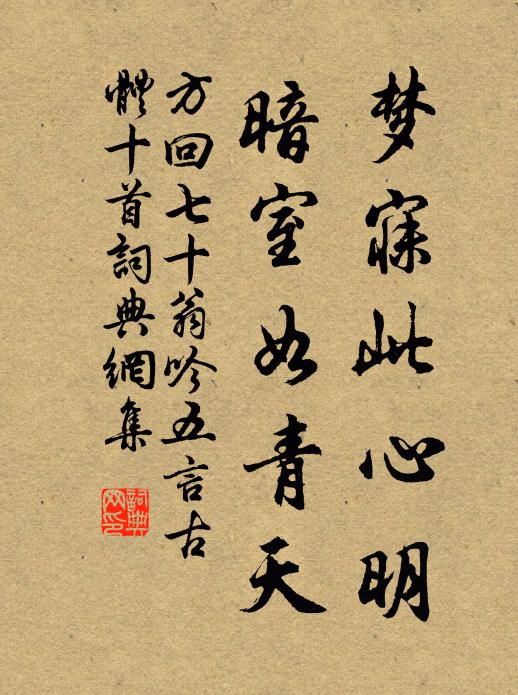 梦寐此心明
暗室如青天
方回七十翁吟五言古
體十首詞典網集
詞典
网印